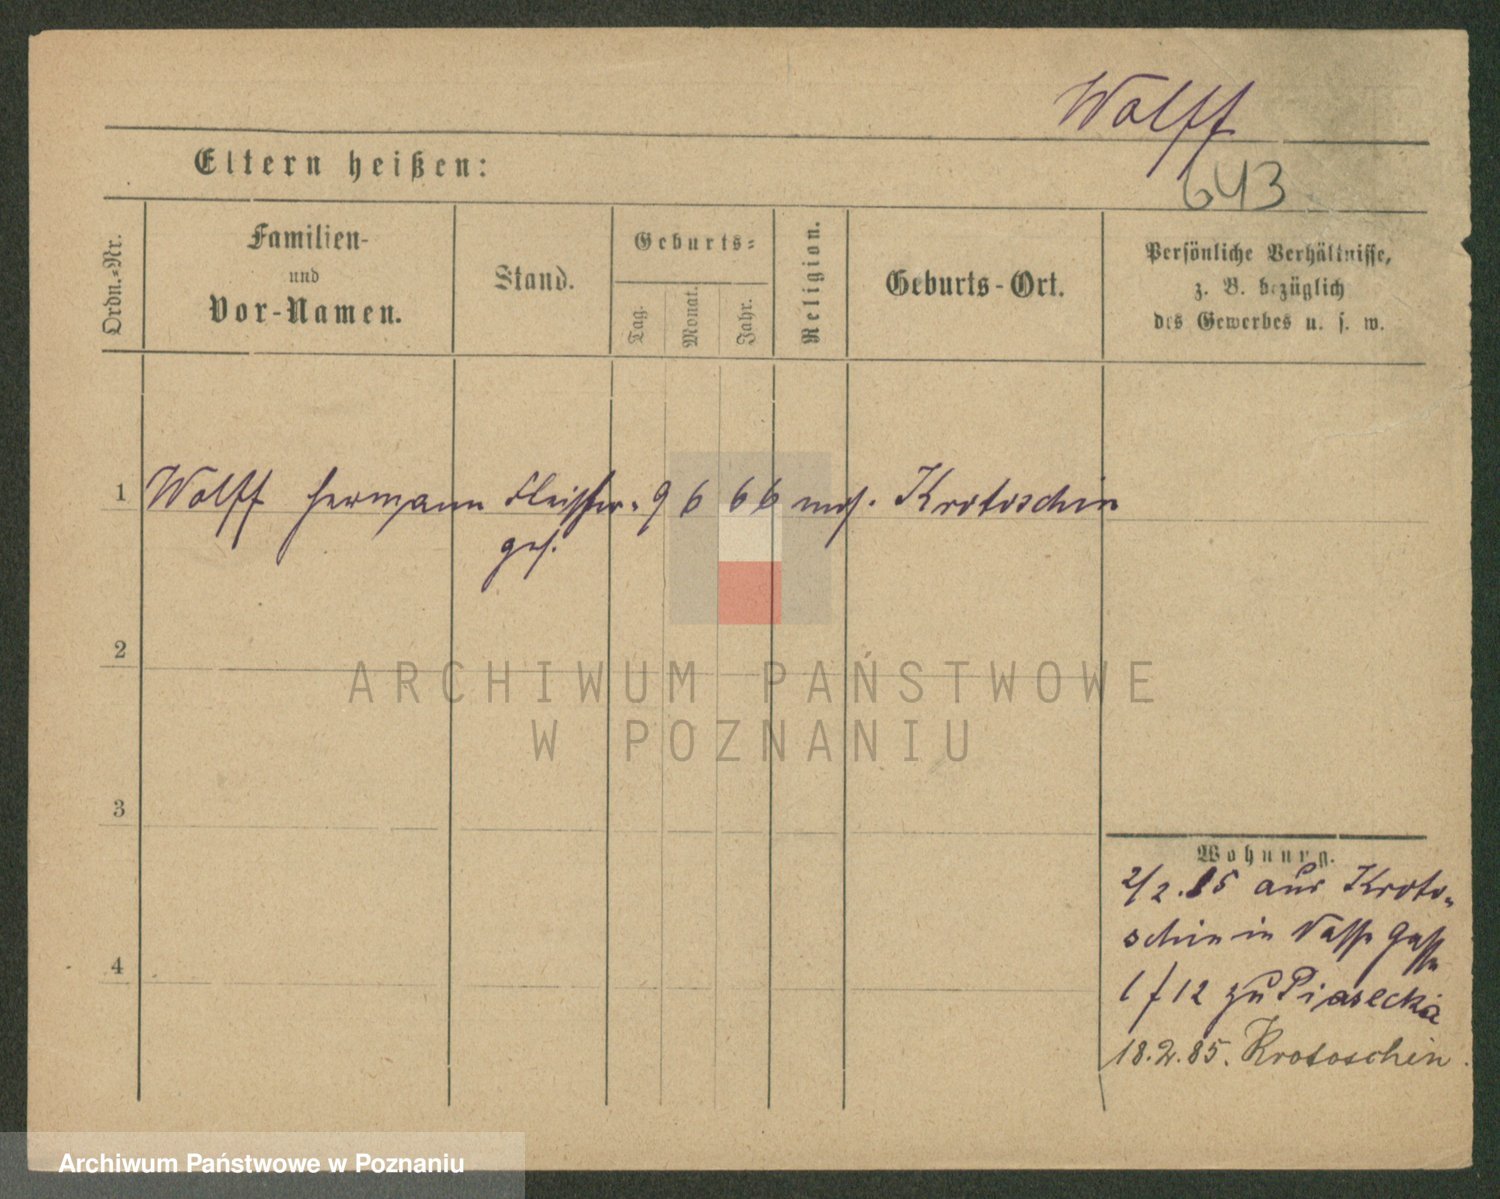 Wolff
Eltern heißen:
643
Ordn.-Nr.
Familien-
und
Vor-Namen.
Stand.
Geburts-
Tag.
Monat.
Jahr.
Religion.
Geburts-Ort.
Persönliche Verhältnisse,
z. B. bezüglich
des Gewerbes u. s. w.
1 Wolff Hermann Fleischer- 9 6 66 mos. Krotoschin
ges.
2
3
4
Wohnung.
2/2.85 aus Kroto-
schin in Nasse Gasse
1/12 zu Piasecka
18.2.85. Krotoschin
ARCHIWUM PAŃSTWOWE
W POZNANIU
Archiwum Państwowe w Poznaniu